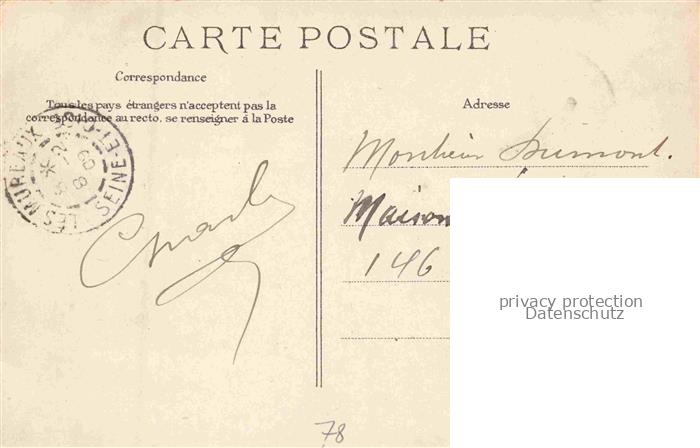 CARTE POSTALE
Correspondance
Tous les pays étrangers n'acceptent pas la
correspondance au recto, se renseigner à la Poste
LES MUREAUX
SEINE-ET-O
Charles
Adresse
Monsieur Dumont.
Maison
146
privacy protection
Datenschutz
78